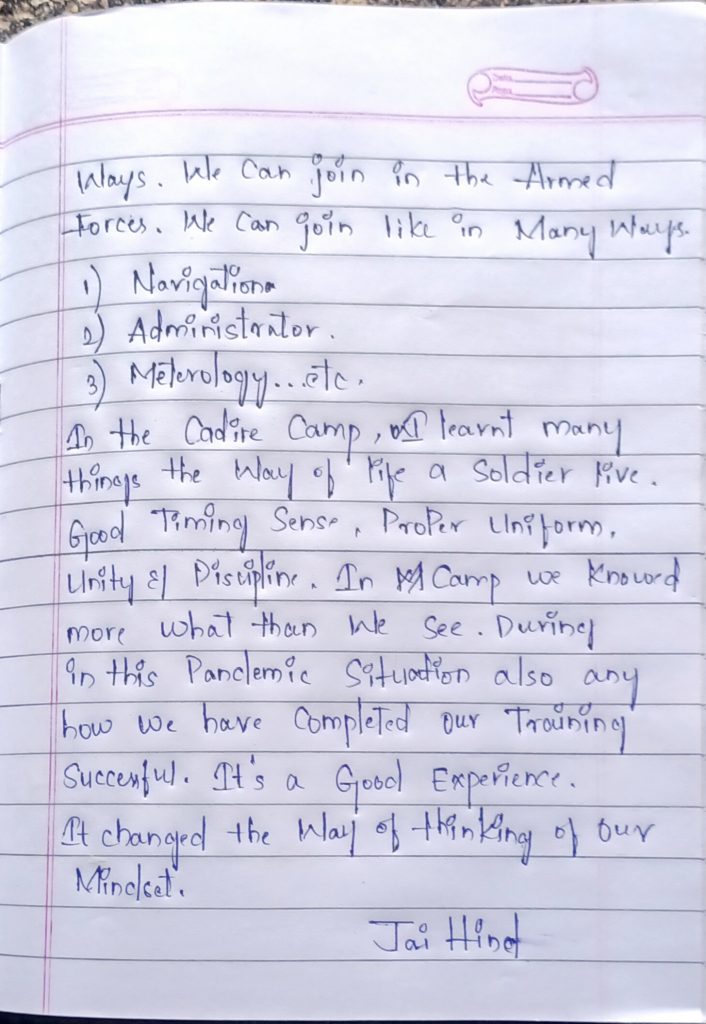 Ways. We Can join in the Armed
Forces. We Can join like in Many Ways.
1) Navigation
2) Administrator.
3) Meterology...etc.
In the Cadire Camp, I learnt many
things the Way of life a Soldier live.
Good Timing Sense, Proper Uniform,
Unity & Discipline. In Camp we Knowed
more what than We See. During
in this Pandemic Situation also any
how we have Completed our Training
Succesful. It's a Good Experience.
It changed the Way of thinking of our
Mindset.
Jai Hind